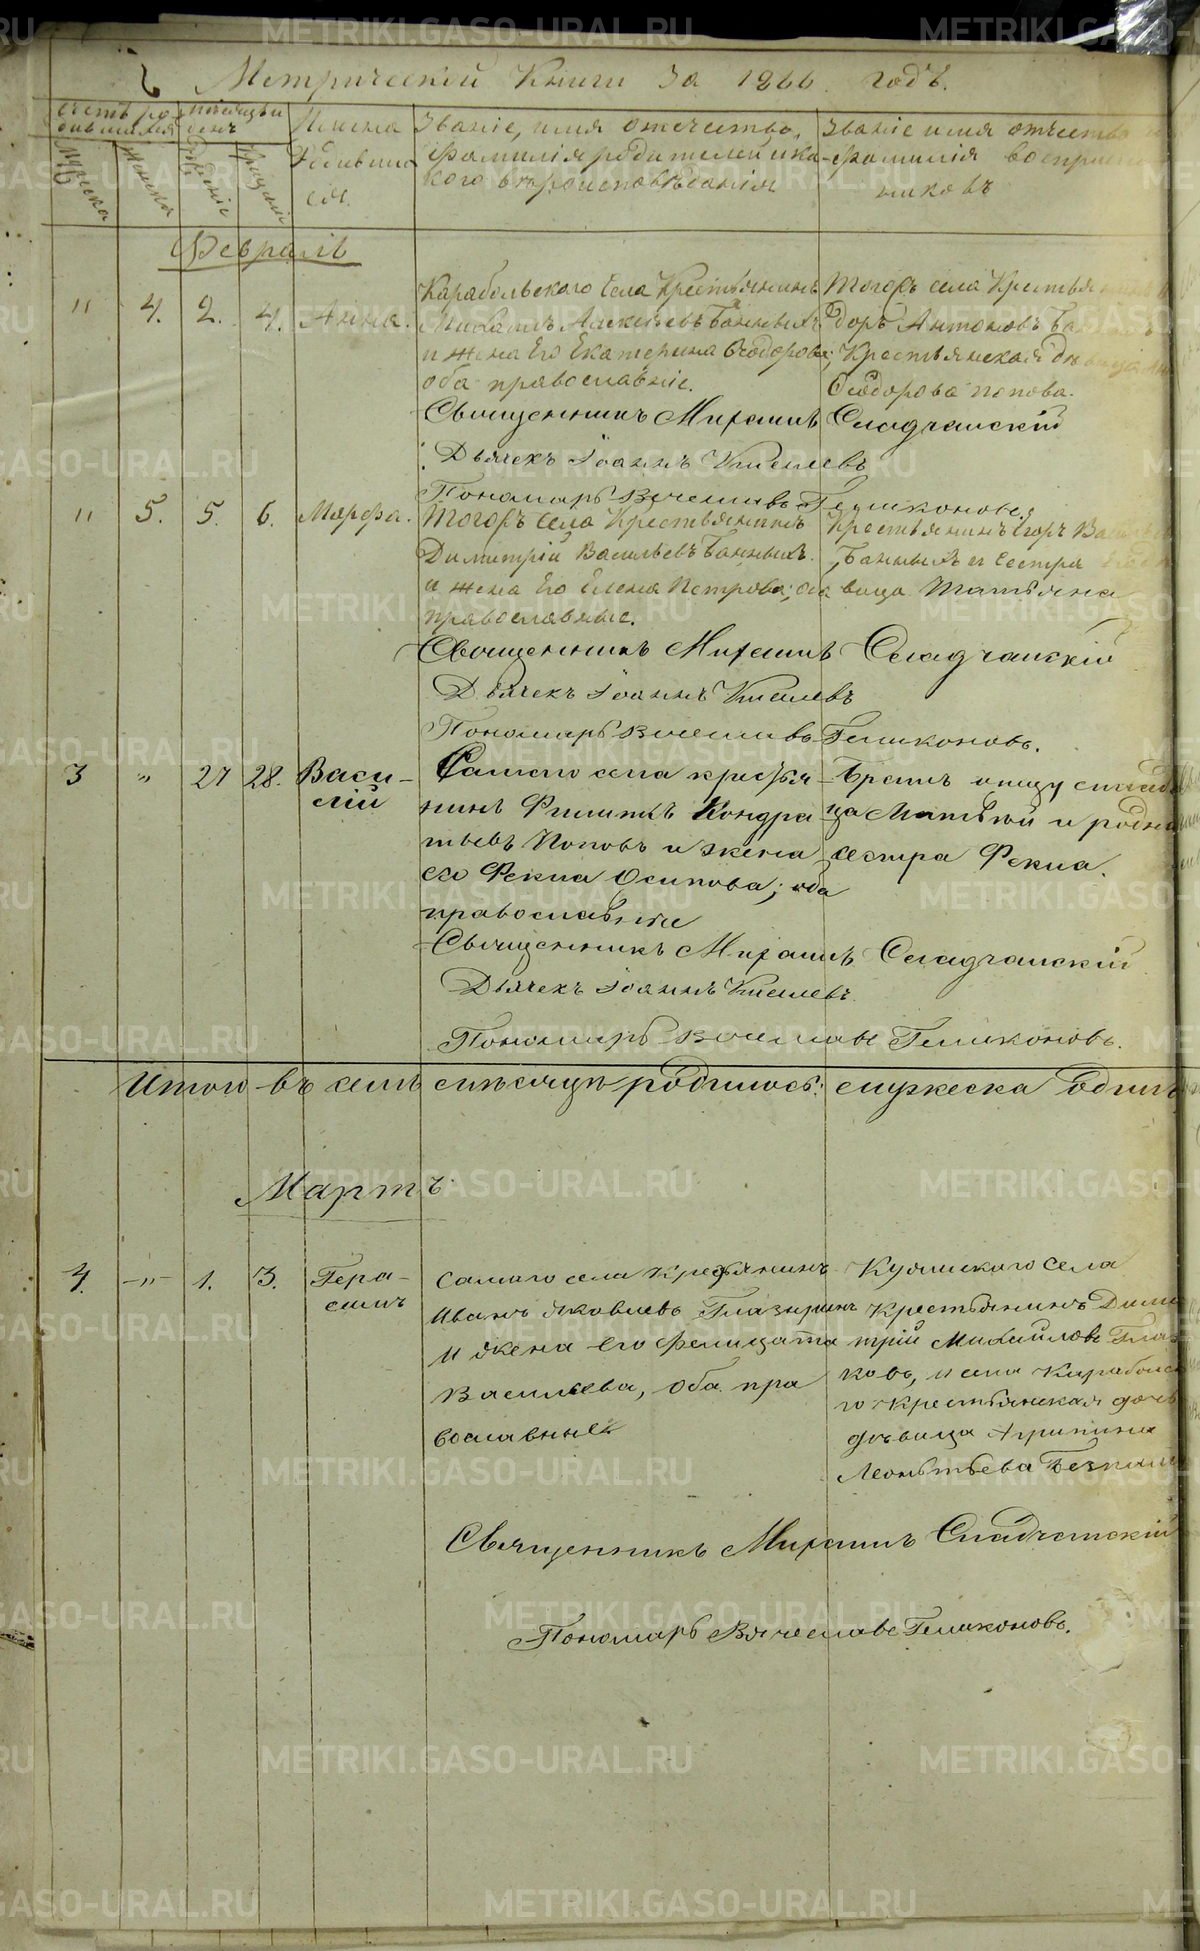 Метрической Книги за 1866 годъ.
Счетъ ро-
дившихся
Мѣсяцъ и
день
Имена
Родивших
ся.
Званіе, имя отчество,
фамилія родителей и ка-
кого вѣроисповѣданія
Званіе имя отчество и
фамилія воспріем
никовъ
Мужска
Женска
Рожденіе
Крещеніе
Февраль
" 4. 2. 4. Анна.
Карабольского Села Крестьянинъ
Михаилъ Алексѣевъ Банныхъ
и жена Его Екатерина Ѳеодорова;
оба православніе.
Тогоръ села Крестьянинъ
доръ Антоновъ
Крестьянская дѣвица
Ѳеодорова Попова.
Священникъ Мираилъ Сладчанскій
Дьячекъ Іоаннъ Киселевъ
Пономарь Вячеславъ Геликоновъ
" 5. 5. 6. Марфа.
Тогоръ села Крестьянинъ
Димитрій Васильевъ Банныхъ
и жена Его Елена Петрова; оба
православные.
Крестьянинъ Егоръ
Банныхъ и Сестра
вица Татьяна
Священникъ Мираилъ Сладчанскій
Дьячекъ Іоаннъ Киселевъ
Пономарь Вячеславъ Геликоновъ.
3 " 27 28. Васи-
лій
Самаго села крестья-
нинъ Филиппъ Кондра
тьевъ Поповъ и жена
его Фекла Осипова; оба
православные
Братъ отцу
ца Матвѣй и родна
сестра Фекла.
Священникъ Мираилъ Сладчанскій
Дьячекъ Іоаннъ Киселевъ
Пономарь Вячеславъ Геликоновъ.
Итого въ семъ мѣсяцѣ родилось: мужеска одинъ
Мартъ
4. " 1. 3. Гера-
симъ
Самаго села Крестьянинъ
Иванъ Яковлевъ Глазыринъ
и жена его Фелицата
Васильева, оба пра
вославные
Куяшского села
Крестьянинъ Дими
трій Михайловъ Глаз
ковъ, и села Карабольс
го Крестьянская дочь
дѣвица Агрипина
Леонтьева
Священникъ Мираилъ Сладчанскій
Пономарь Вячеславъ Геликоновъ.
METRIKI.GASO-URAL.RU